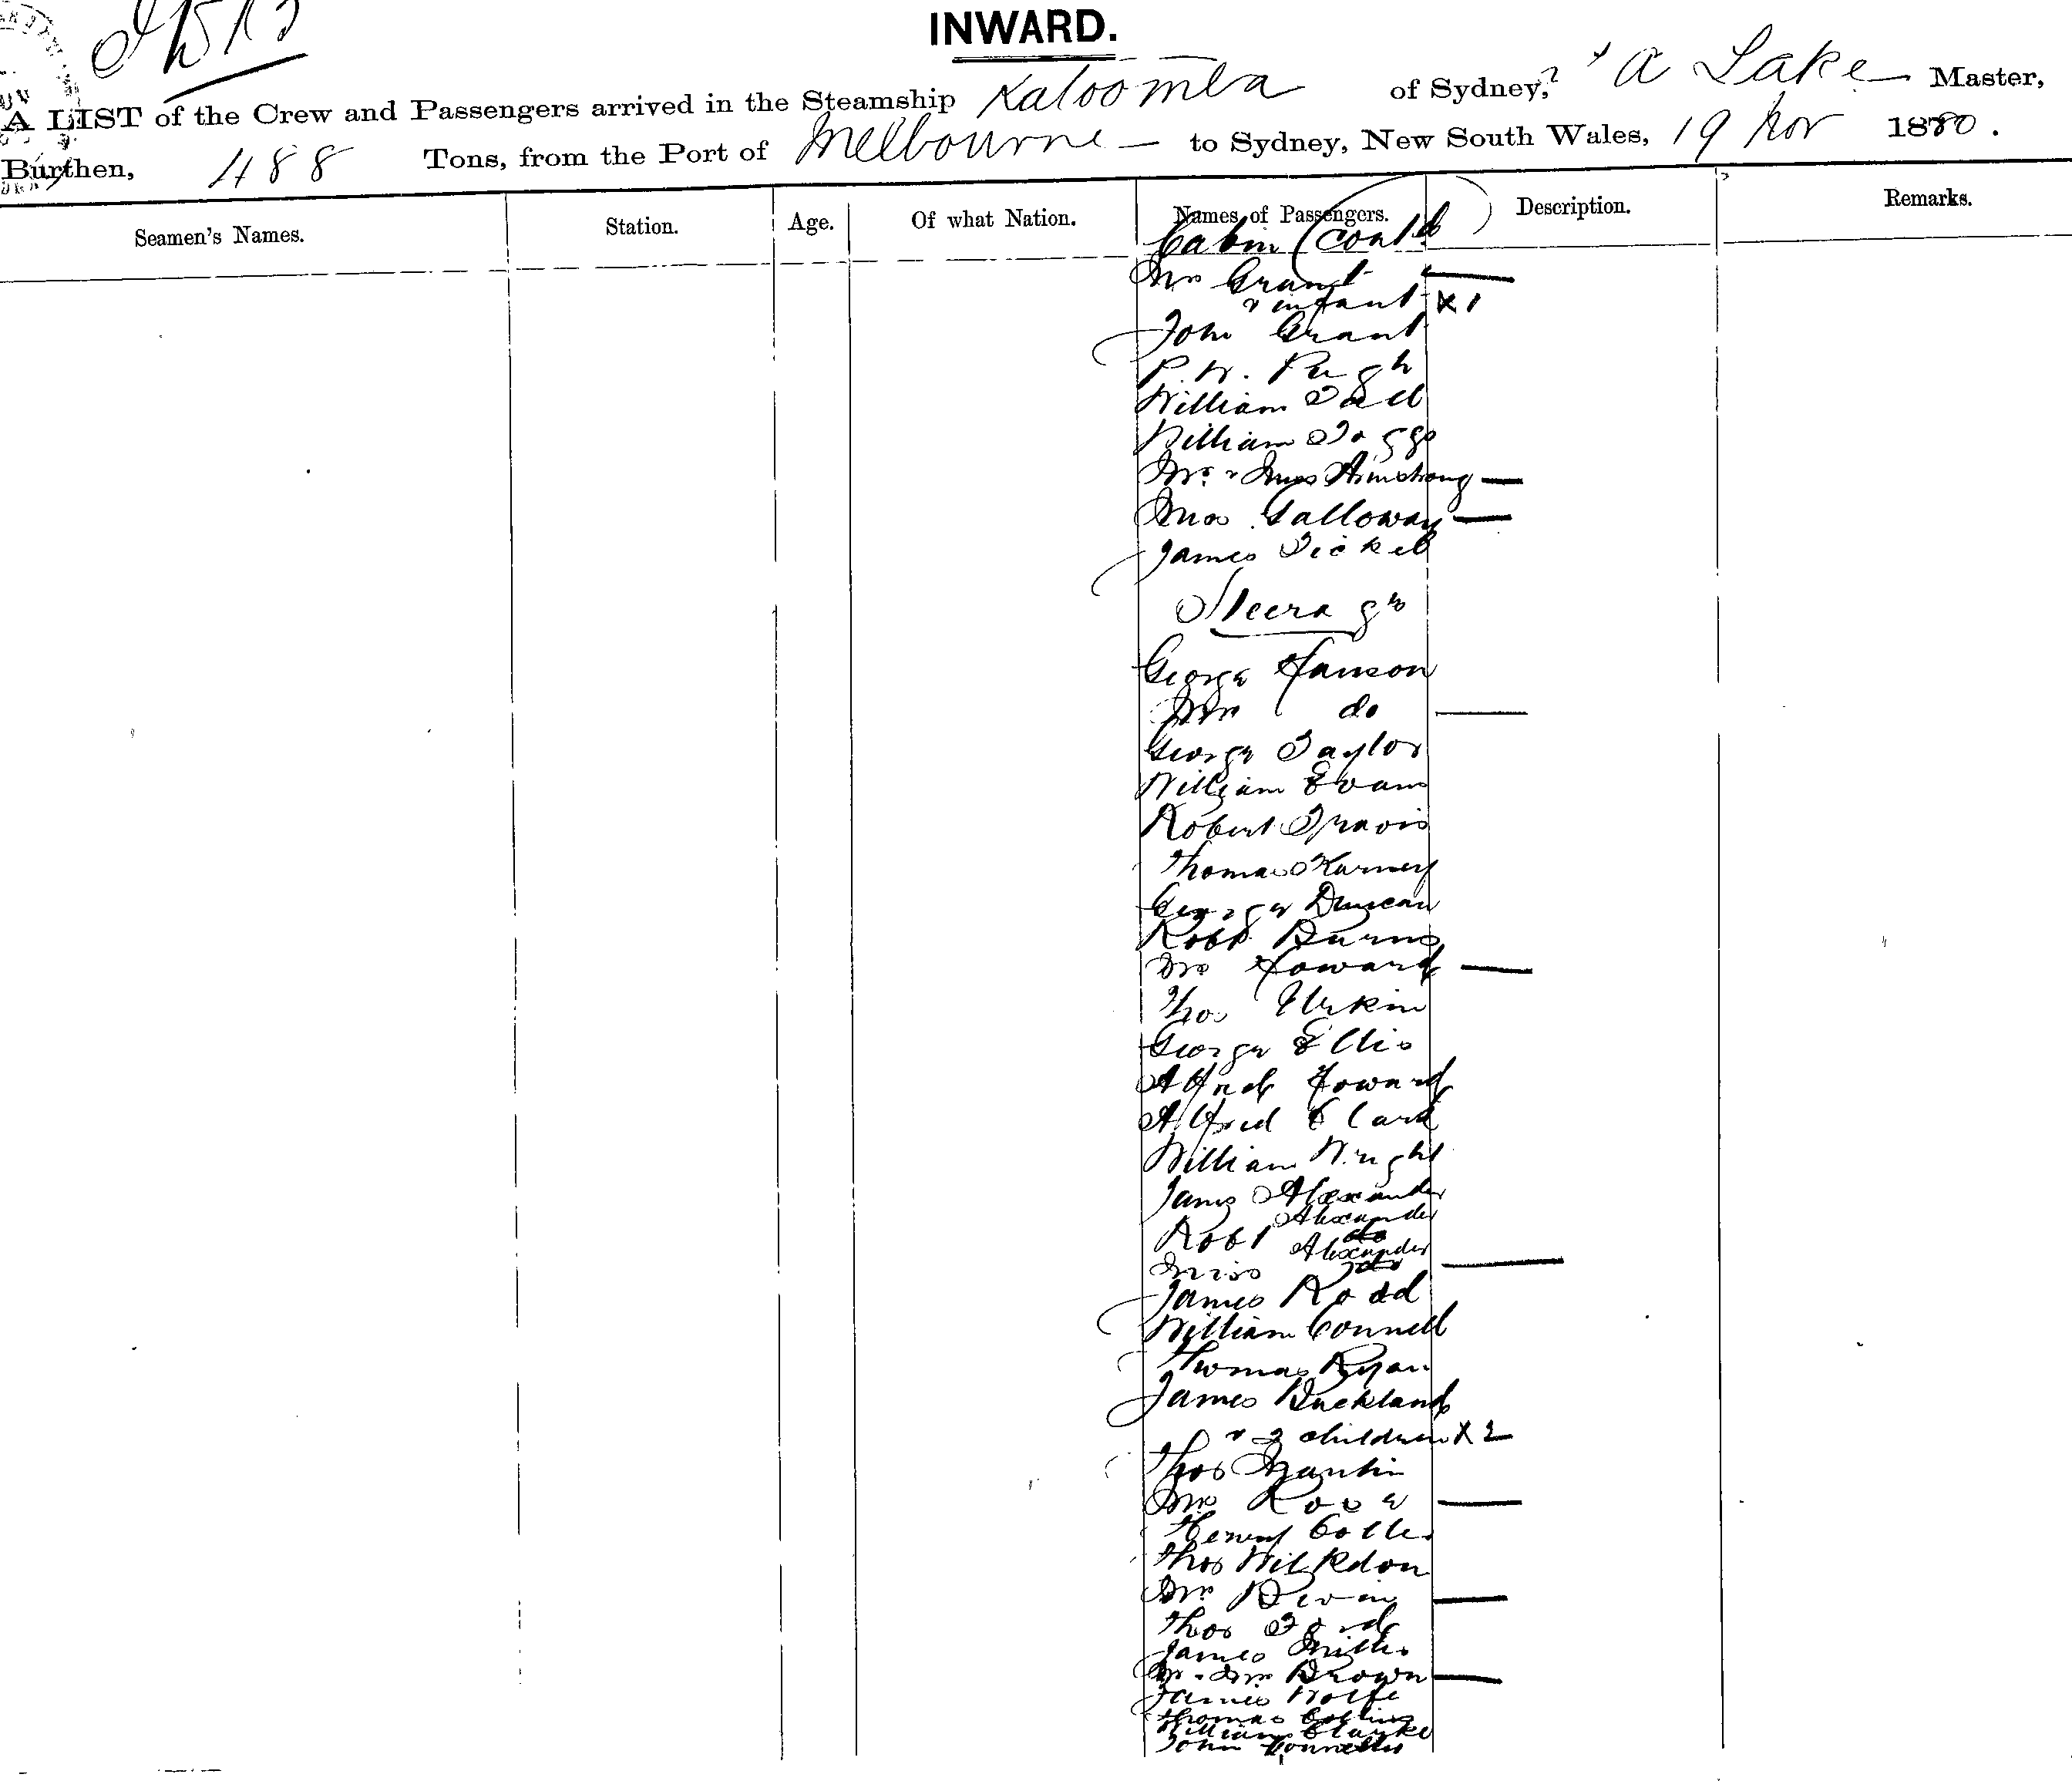 INWARD.
A LIST of the Crew and Passengers arrived in the Steamship Katoomba of Sydney, A Lake Master,
Burthen, 488 Tons, from the Port of Melbourne to Sydney, New South Wales, 19 Nov 1880.
Seamen's Names. Station. Age. Of what Nation. Names of Passengers. Description. Remarks.
Cabin (contd
Mrs Grant
& infant X 1
John Grant
P. W. Pugh
William
William
Mr. & Miss Armstrong
Mrs Galloway
James
Steerage
George Hanson
Mrs do
George Taylor
William Evans
Robert Travis
Thomas
George Duncan
Robt Burns
Mrs Howard
Thos
George Ellis
Alfred Howard
Alfred Clark
William Wright
James Alexander
Alexander
Robt do
Alexander
Miss do
James Rodd
William Connell
Thomas Ryan
James Buckland
& 2 children X 2
Thos
Mrs Rose
Henry
Thos
Mrs
Thos Ford
James
Mr & Mrs Brown
James Wolfe
Thomas Collins
William Clarke
John